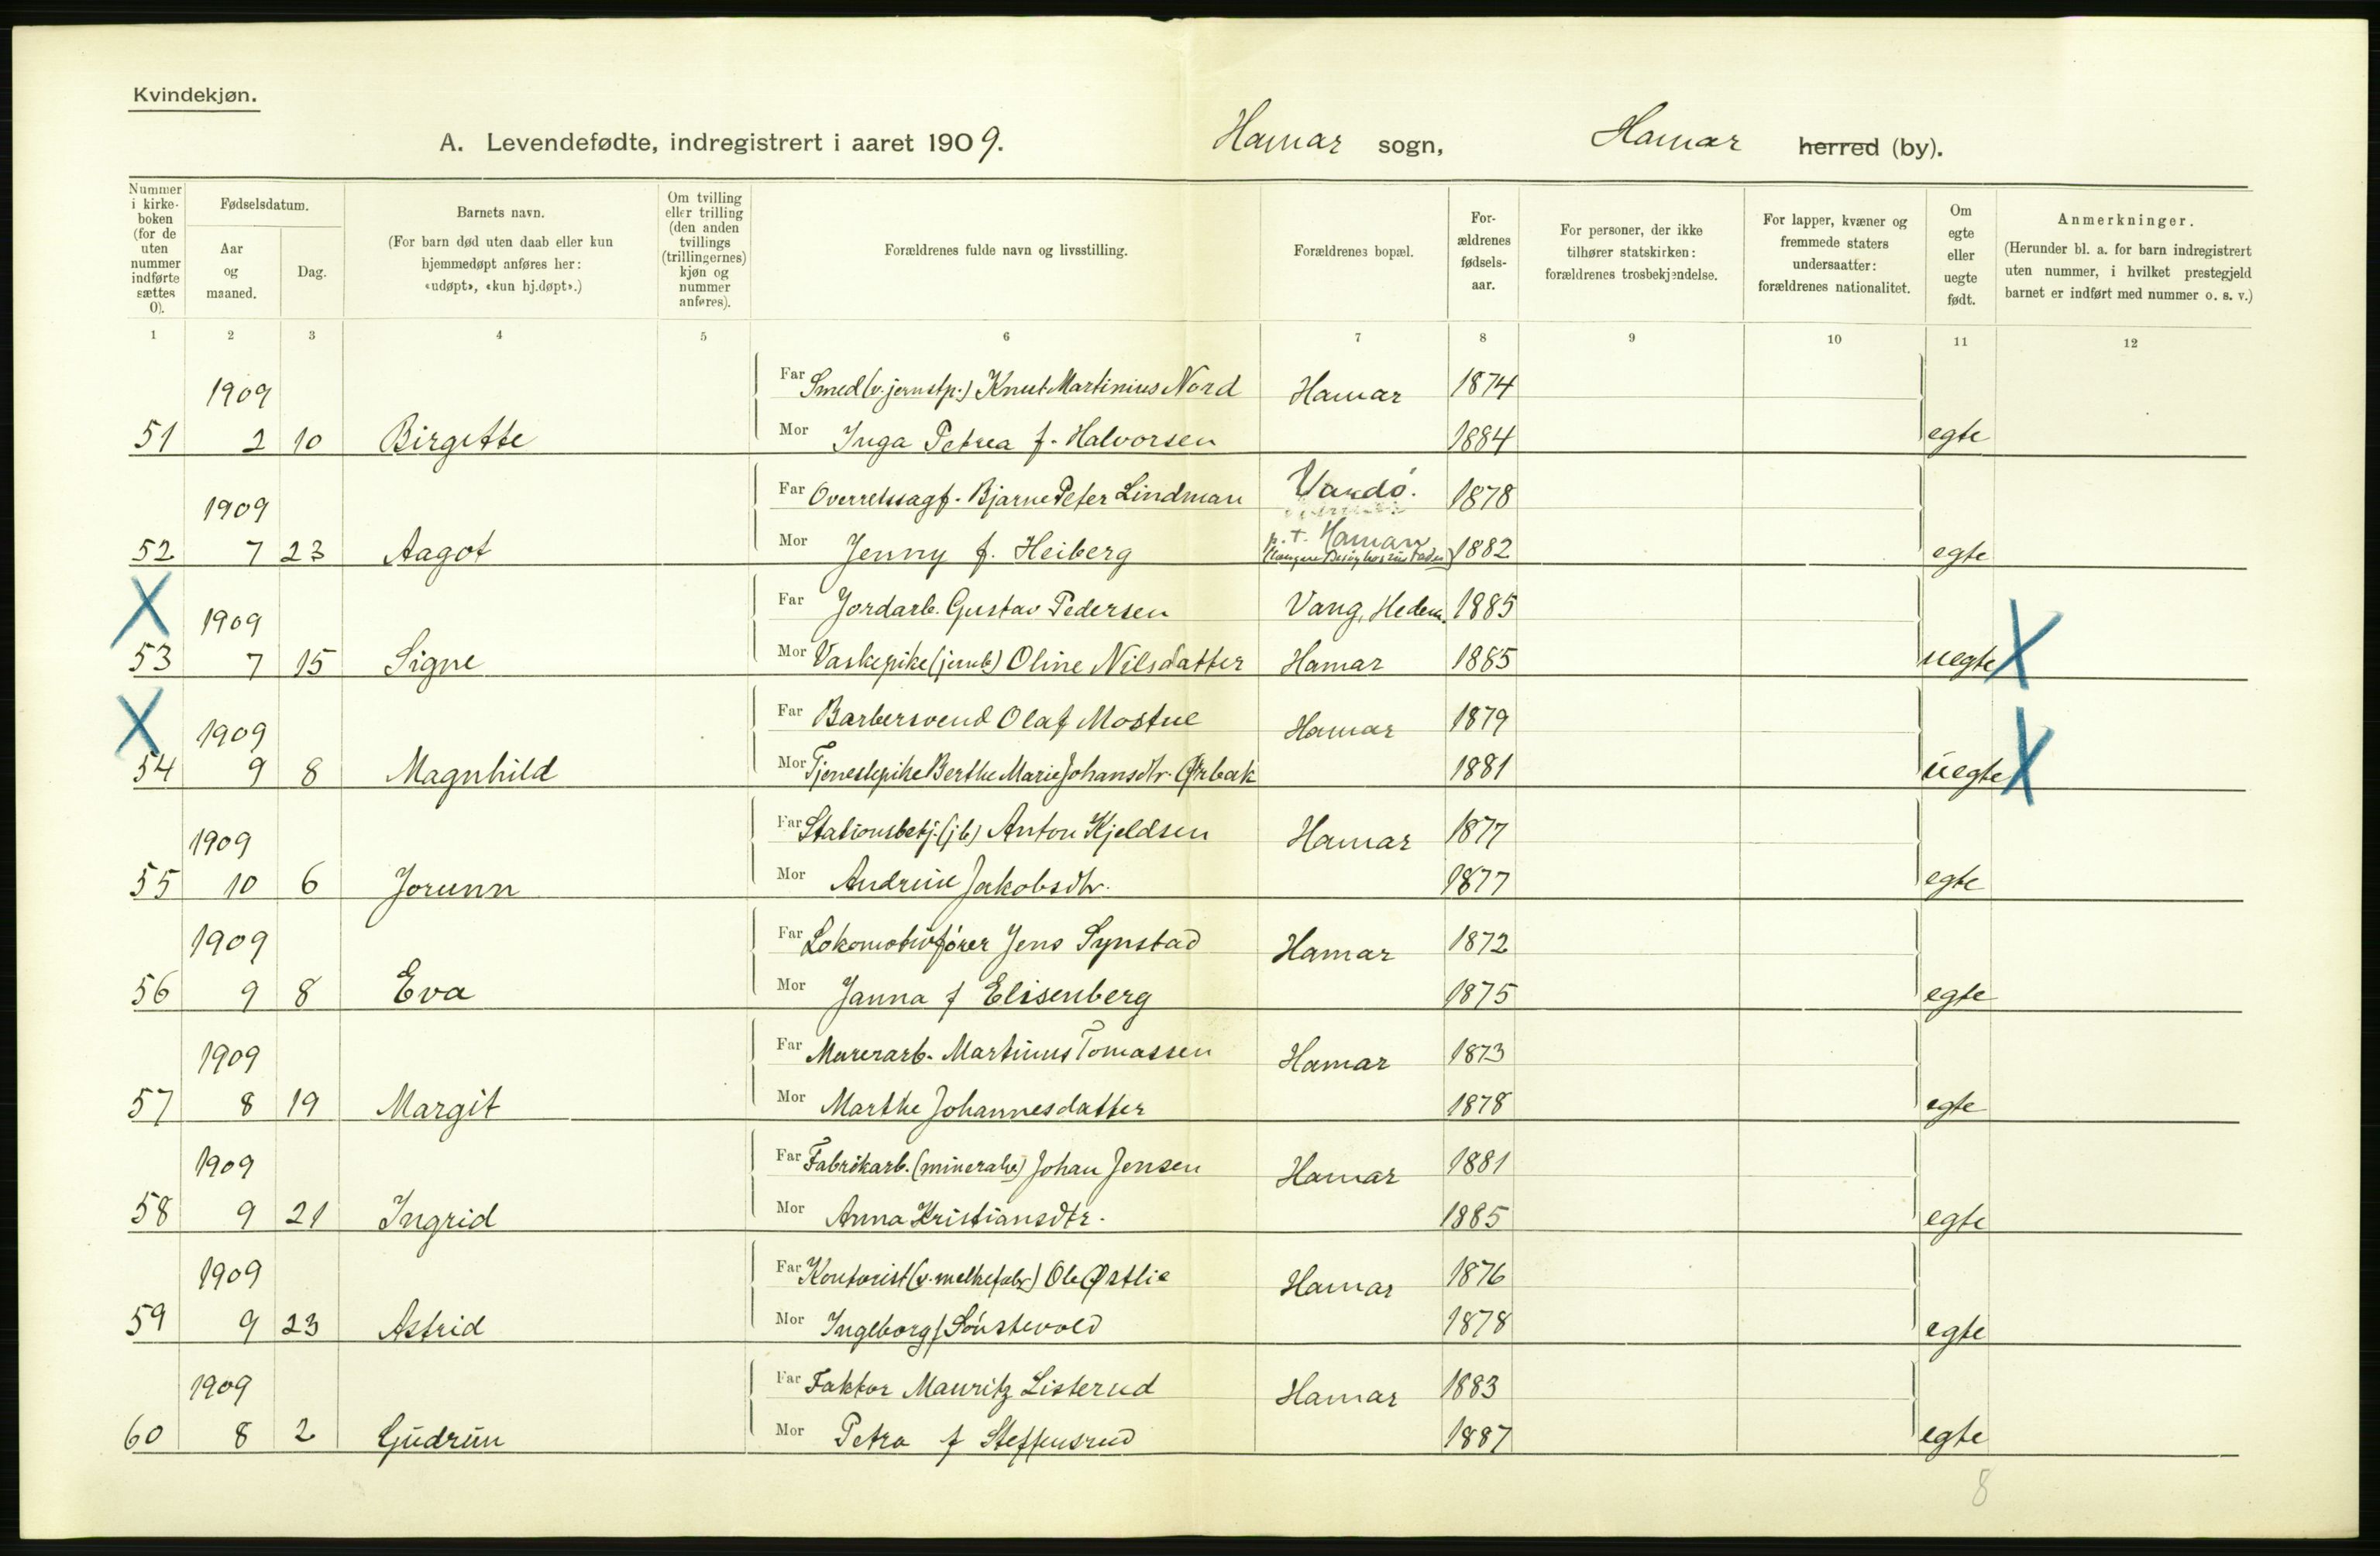 Kvindekjøn.
A. Levendefødte, indregistrert i aaret 1909. Hamar sogn, Hamar herred (by).
Nummer i kirke-boken (for de uten nummer indførte sættes 0).
Fødselsdatum.
Aar og maaned.
Dag.
Barnets navn.
(For barn død uten daab eller kun hjemmedøpt anføres her: «udøpt», «kun hj.døpt».)
Om tvilling eller trilling (den anden tvillings (trillingernes) kjøn og nummer anføres).
Forældrenes fulde navn og livsstilling.
Forældrenes bopæl.
For-ældrenes fødsels-aar.
For personer, der ikke tilhører statskirken: forældrenes trosbekjendelse.
For lapper, kvæner og fremmede staters undersaatter: forældrenes nationalitet.
Om egte eller uegte født.
Anmerkninger.
(Herunder bl. a. for barn indregistrert uten nummer, i hvilket prestegjeld barnet er indført med nummer o. s. v.)
1 2 3 4 5 6 7 8 9 10 11 12
1909 Far Smed (v. jernstp.) Knut Martinius Nord Hamar 1874
51 2 10 Birgitte Mor Inga Petrea f. Halvorsen 1884 egte
1909 Far Overretssagf. Bjarne Peter Lindman Vardö. 1878
52 7 23 Aagot Mor Jenny f. Heiberg p. t. Hamar 1882 egte
X 1909 Far Jordarb. Gustav Pedersen Vang, Hedem. 1885
53 7 15 Signe Mor Vaskepike (jernb) Oline Nilsdatter Hamar 1885 uegte X
X 1909 Far Barbersvend Olaf Mostue Hamar 1879
54 9 8 Magnhild Mor Tjenestepike Berthe Marie Johansdtr. Ørbak 1881 uegte X
1909 Far Stationsbetj. (jb) Anton Kjeldsen Hamar 1877
55 10 6 Jorunn Mor Andrine Jakobsdtr. 1877 egte
1909 Far Lokomotivfører Jens Synstad Hamar 1872
56 9 8 Eva Mor Janna f Elisenberg 1875 egte
1909 Far Murerarb. Martinus Tomassen Hamar 1873
57 8 19 Margit Mor Marthe Johannesdatter 1878 egte
1909 Far Fabrikarb. (mineralv) Johan Jensen Hamar 1881
58 9 21 Ingrid Mor Anna Kristiansdtr. 1885 egte
1909 Far Kontorist (v. melkefabr) Ole Østlie Hamar 1876
59 9 23 Astrid Mor Ingeborg f Sönstevold 1878 egte
1909 Far Faktor Mauritz Listerud Hamar 1883
60 8 2 Gudrun Mor Petra f Steffensrud 1887 egte
8